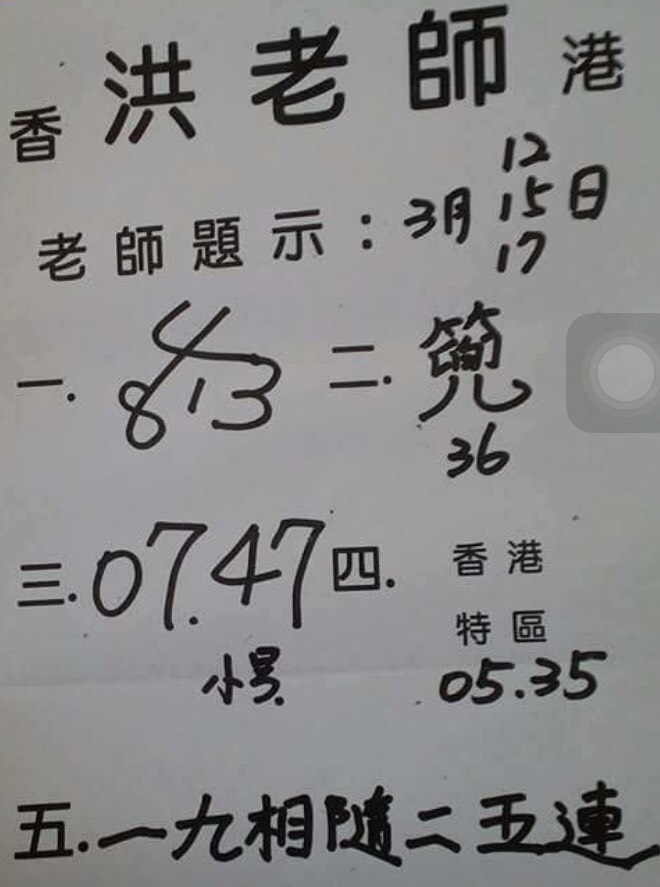 香 洪老師 港
老師題示：3月 12 15 17 日
一. 813 二.
36
三. 07.47 四. 香港
特區
小号. 05.35
五. 一九相隨二五連